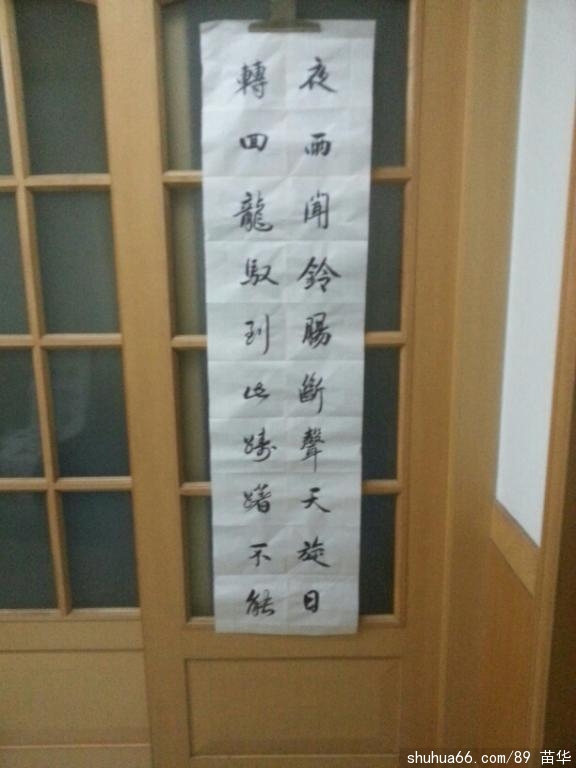 夜雨聞鈴腸斷聲天旋日
轉回龍馭到此躊躇不能
shuhua66.com/89 苗华